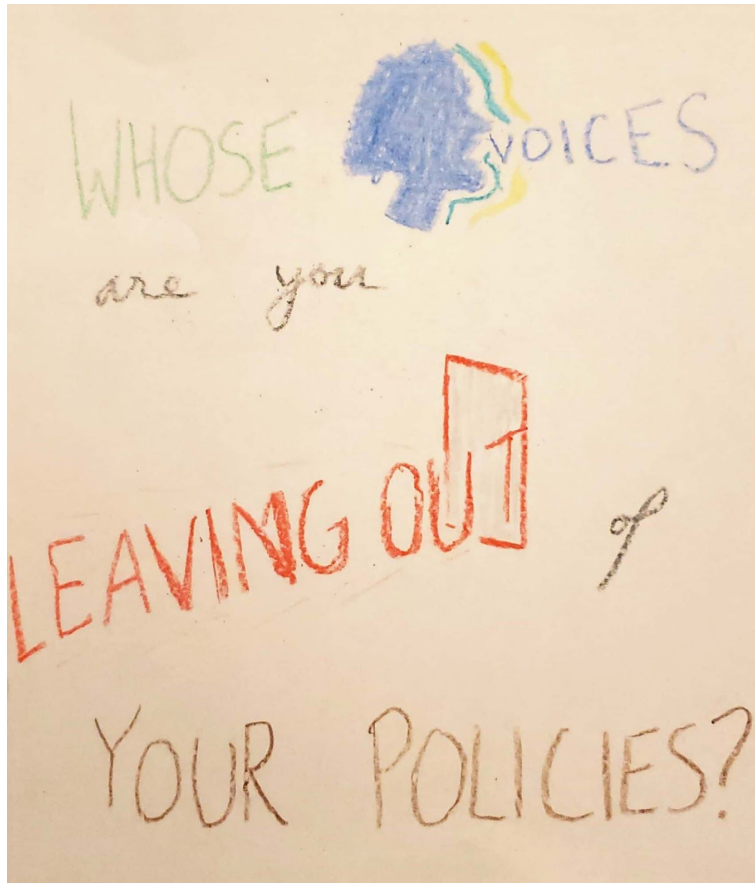 WHOSE VOICES
are you
LEAVING OUT of
YOUR POLICIES?